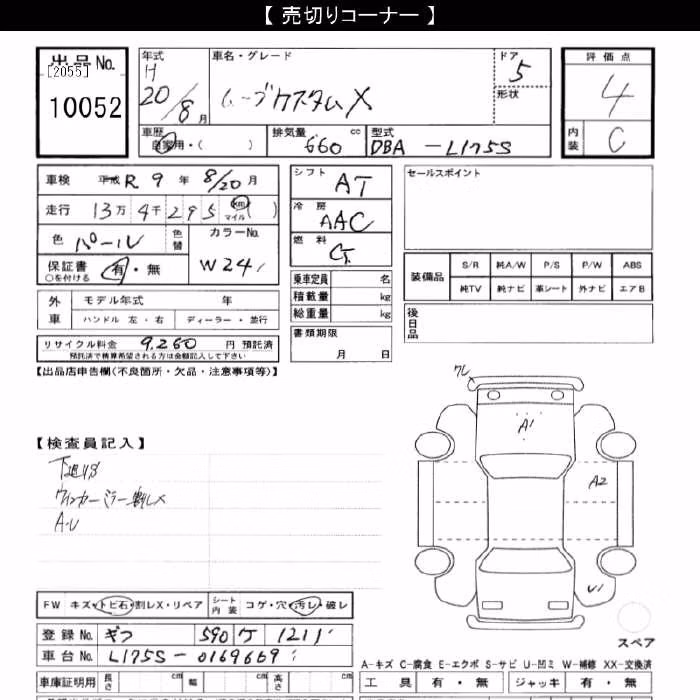 【 売切りコーナー 】
出品 No.
[2055]
10052
年式
H
20/8月
車名・グレード
ムーブカスタムX
ドア
5
形状
評価点
4
内装
C
車歴
自家用・( )
排気量
660 cc
型式
DBA -L175S
車検 平成 R 9 年 8/20 月
走行 13万 4千 295 km マイル ( )
色 パール 色替
カラーNo.
W24
保証書 有・無
○を付ける
外車
モデル年式 年
ハンドル 左・右 ディーラー・並行
リサイクル料金 9,260 円 預託済
預託済で精算希望される方は金額記入して下さい
シフト AT
冷房 AAC
燃料
乗車定員 名
積載量 kg
総重量 kg
書類期限
月 日
セールスポイント
装備品
S/R 純A/W P/S P/W ABS
純TV 純ナビ 革シート 外ナビ エアB
後日品
【出品店申告欄(不良箇所・欠品・注意事項等)】
【検査員記入】
下廻りS
ウィンカーミラー割レX
A・U
ワレ
A1
A2
U1
スペア
FW キズ・トビ石・割レX・リペア
シート内装 コゲ・穴・汚レ・破レ
登録 No. ギフ 590 ケ 1211
車台 No. L175S- 0169669
A-キズ C-腐食 E-エクボ S-サビ U-凹ミ W-補修 XX-交換済
車庫証明用 長さ cm 幅 cm 高さ cm
工具 有・無 ジャッキ 有・無